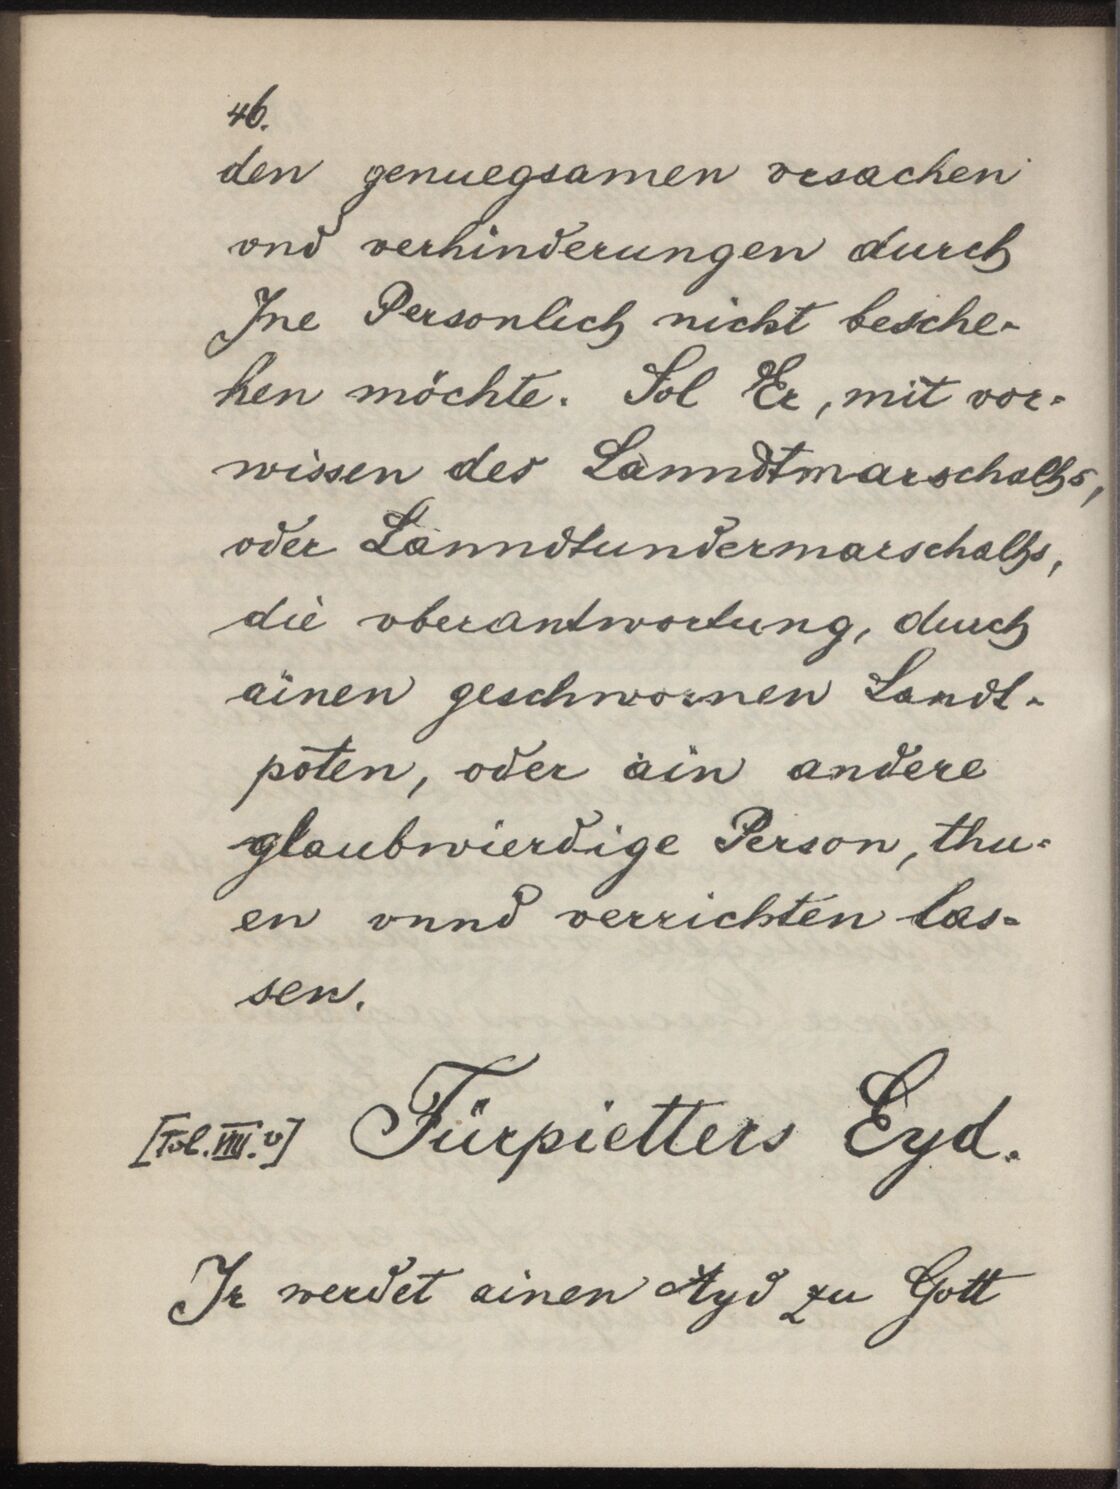 46.
den genuegsamen vrsachen
vnd verhinderungen durch
Jne Personlich nicht besche-
hen möchte. Sol Er, mit vor-
wissen des Lanndtmarschalhs,
oder Lanndtundermarschalhs,
die vberantwortung, durch
ainen geschwornen Landt-
poten, oder ain andere
glaubwierdige Person, thu-
en vnnd verrichten las-
sen.
[Fol. VIII. v] Fürpietters Eyd.
Jr werdet ainen Ayd zu Gott